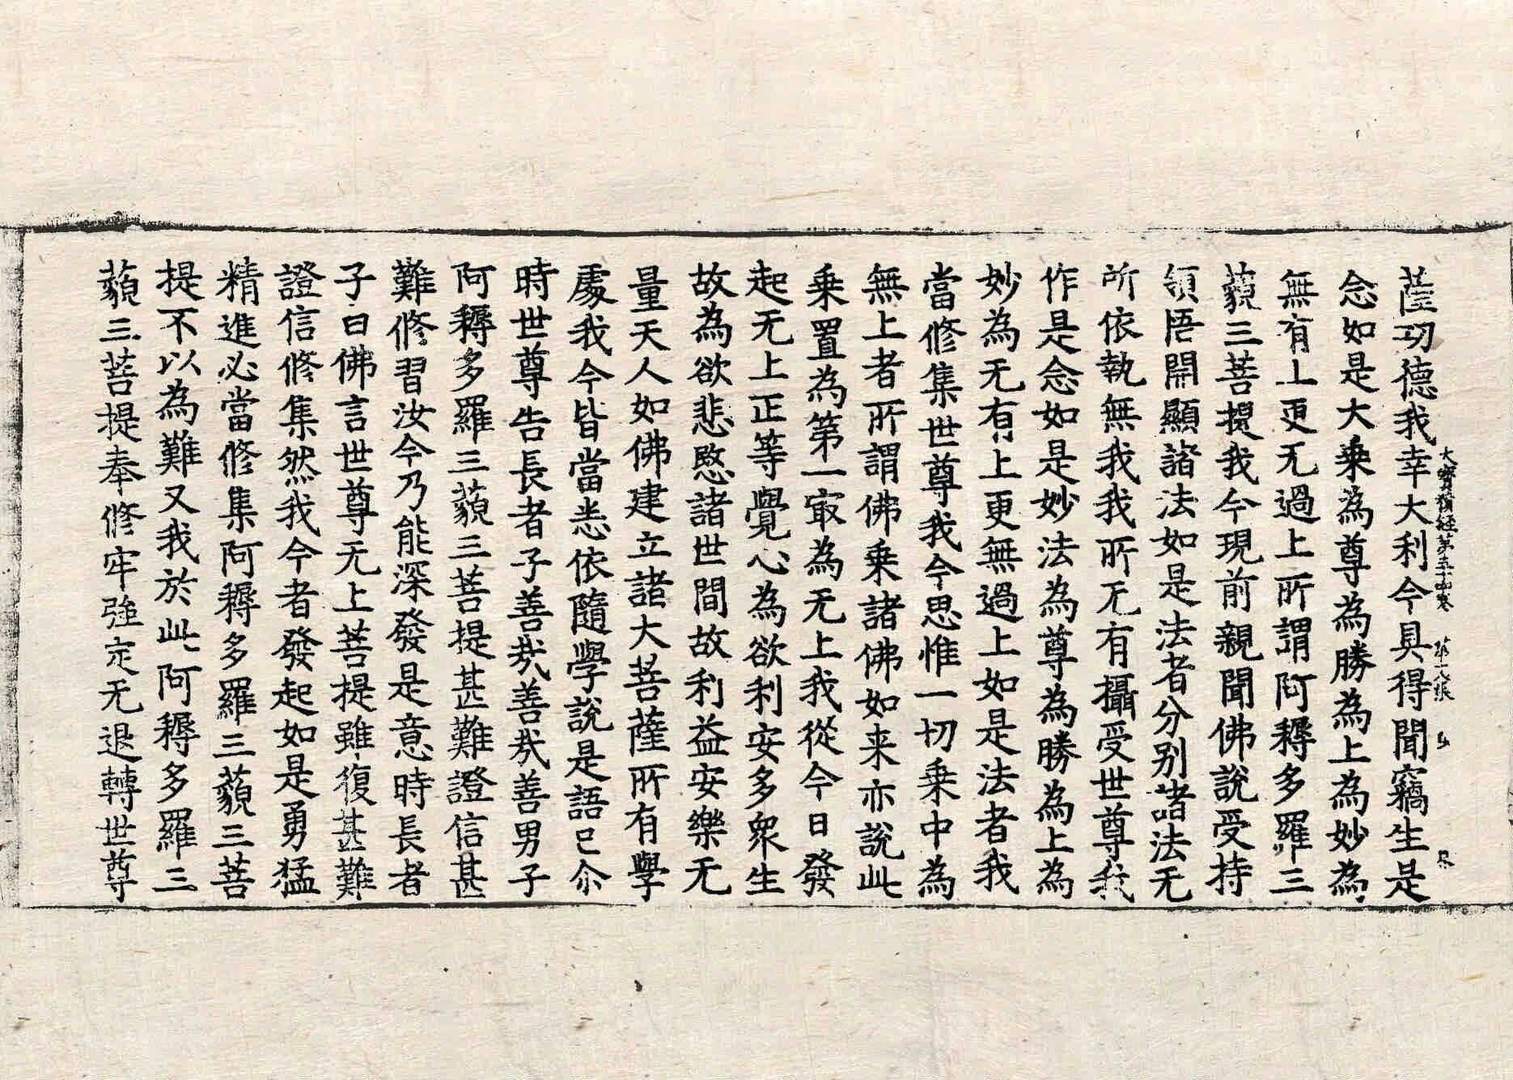 大寶積經第五十四卷 第十八張
薩功德我幸大利今具得聞竊生是
念如是大乘為尊為勝為上為妙為
無有上更无過上所謂阿耨多羅三
藐三菩提我今現前親聞佛說受持
領悟開顯諸法如是法者分別諸法无
所依執無我我所无有攝受世尊我
作是念如是妙法為尊為勝為上為
妙為无有上更無過上如是法者我
當修集世尊我今思惟一切乘中為
無上者所謂佛乘諸佛如来亦說此
乘置為第一㝡為无上我從今日發
起无上正等覺心為欲利安多眾生
故為欲悲愍諸世間故利益安樂无
量天人如佛建立諸大菩薩所有學
處我今皆當悉依隨學說是語已尒
時世尊告長者子善哉善哉善男子
阿耨多羅三藐三菩提甚難證信甚
難修習汝今乃能深發是意時長者
子曰佛言世尊无上菩提雖復甚難
證信修集然我今者發起如是勇猛
精進必當修集阿耨多羅三藐三菩
提不以為難又我於此阿耨多羅三
藐三菩提奉修牢強定无退轉世尊